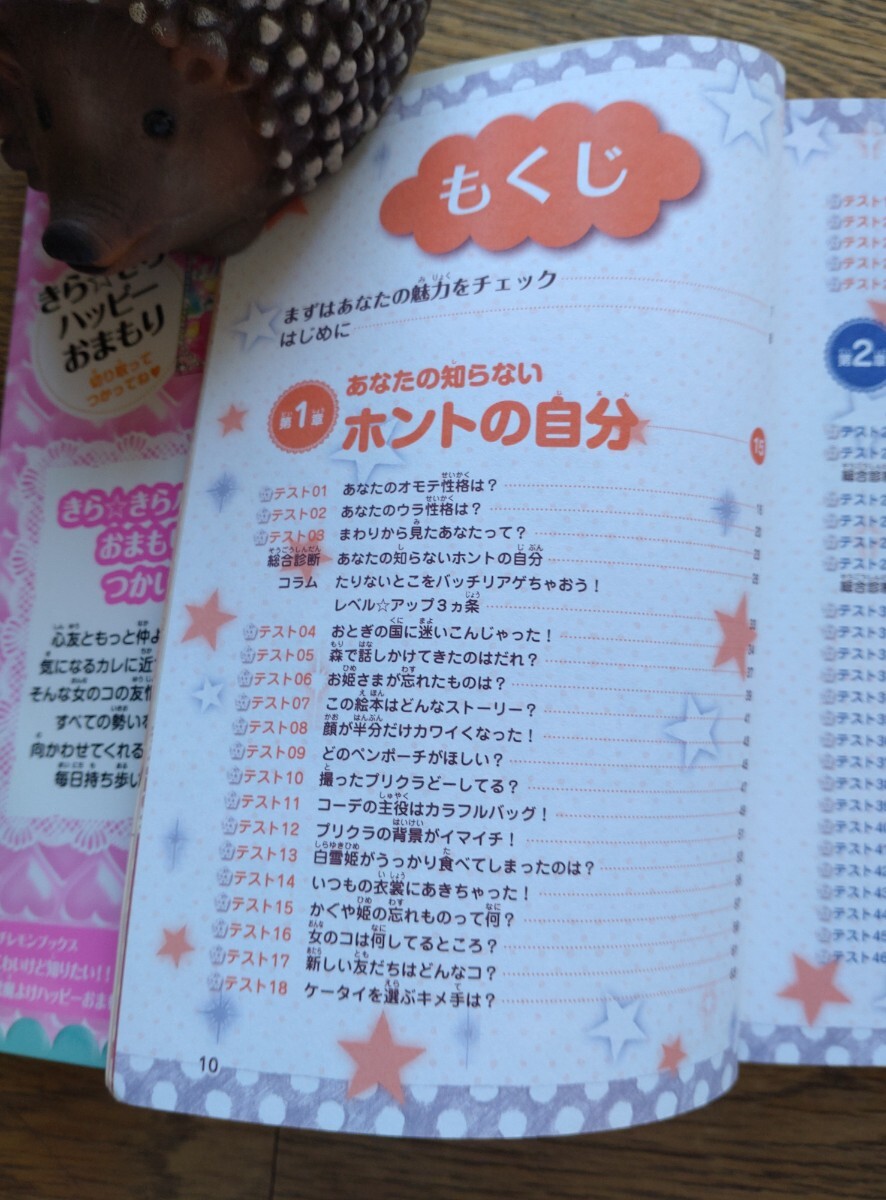 もくじ
まずはあなたの魅力をチェック
はじめに
第1章
あなたの知らない
ホントの自分
15
テスト01 あなたのオモテ性格は?
テスト02 あなたのウラ性格は?
テスト03 まわりから見たあなたって?
総合診断 あなたの知らないホントの自分
コラム たりないとこをバッチリアゲちゃおう!
レベル☆アップ3ヵ条
テスト04 おとぎの国に迷いこんじゃった!
テスト05 森で話しかけてきたのはだれ?
テスト06 お姫さまが忘れたものは?
テスト07 この絵本はどんなストーリー?
テスト08 顔が半分だけカワイくなった!
テスト09 どのペンポーチがほしい?
テスト10 撮ったプリクラどーしてる?
テスト11 コーデの主役はカラフルバッグ!
テスト12 プリクラの背景がイマイチ!
テスト13 白雪姫がうっかり食べてしまったのは?
テスト14 いつもの衣裳にあきちゃった!
テスト15 かぐや姫の忘れものって何?
テスト16 女のコは何してるところ?
テスト17 新しい友だちはどんなコ?
テスト18 ケータイを選ぶキメ手は?
10
ハッピー
おまもり
切り取って
つかってね♥
きら☆きら
おまも
つかい
心友ともっと仲よ
気になるカレに近
そんな女のコの友情
すべての勢いを
向かわせてくれる
毎日持ち歩い
レモンブックス
わいけど知りたい!!
よけハッピーおま
第2章
テスト
テスト2
テスト2
テスト2
テスト2
テスト2
テスト2
総合診
テスト2
テスト2
テスト2
総合診
テスト3
テスト3
テスト3
テスト3
テスト3
テスト3
テスト3
テスト3
テスト3
テスト4
テスト41
テスト42
テスト43
テスト44
テスト45
テスト46